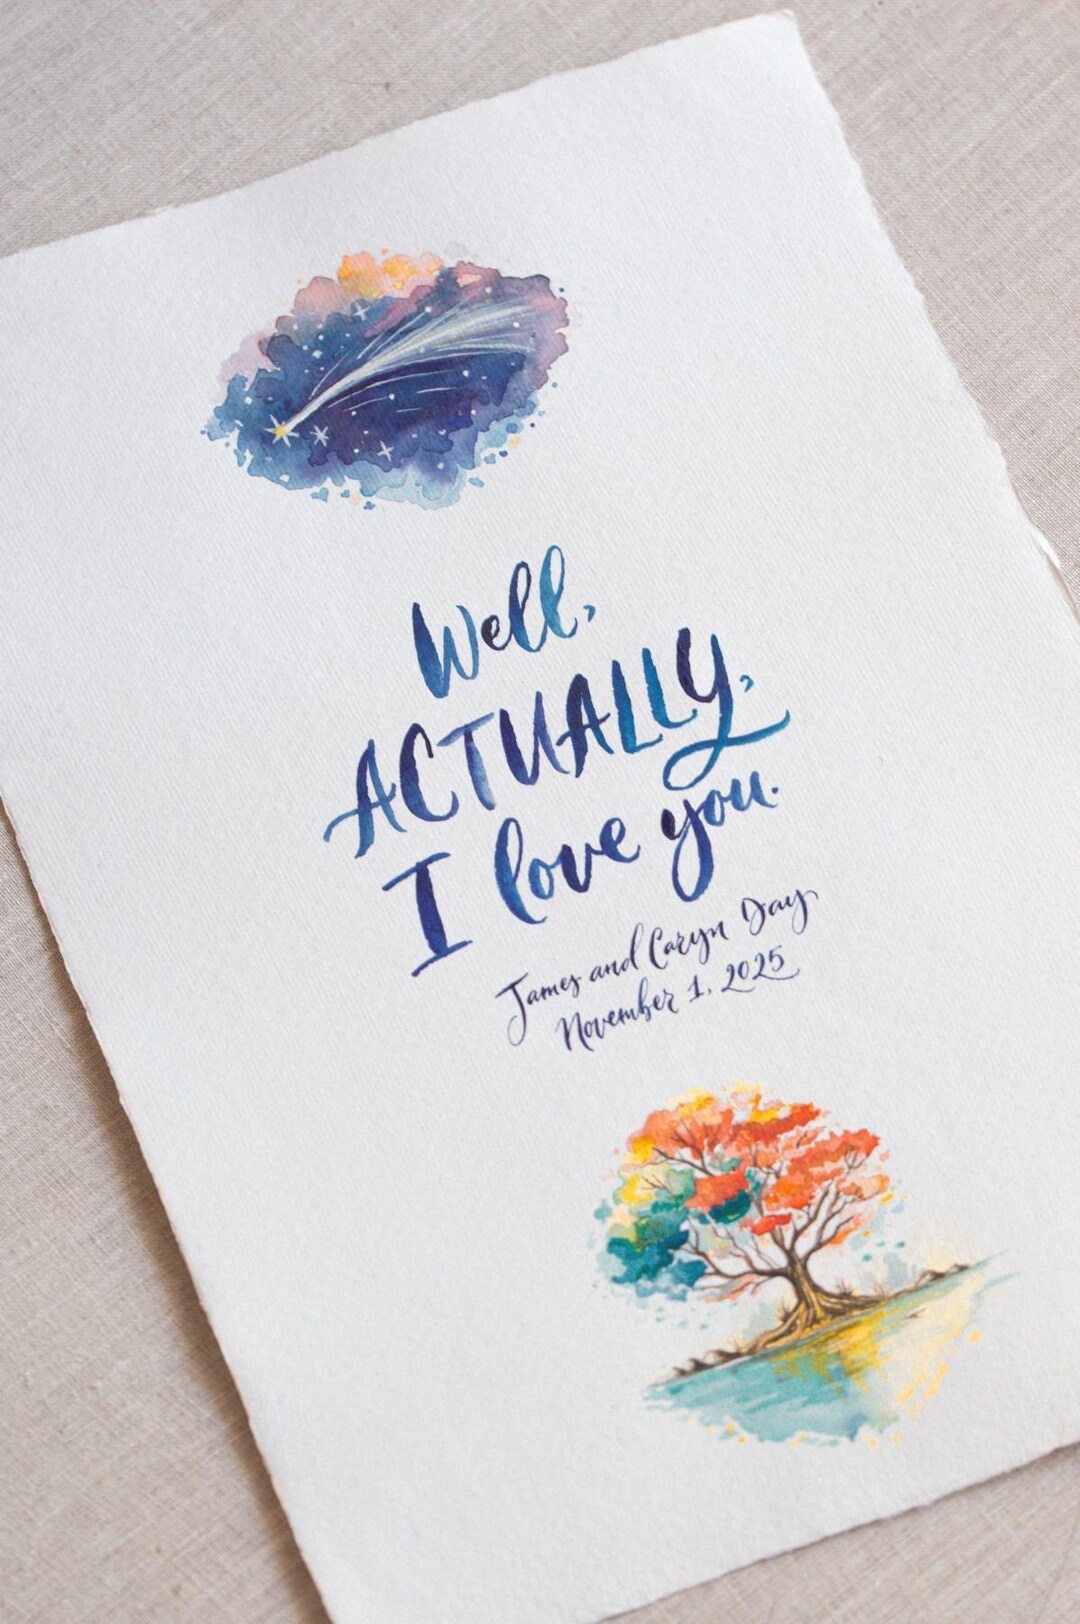 Well,
ACTUALLY,
I love you.
James and Caryn Day
November 1, 2025